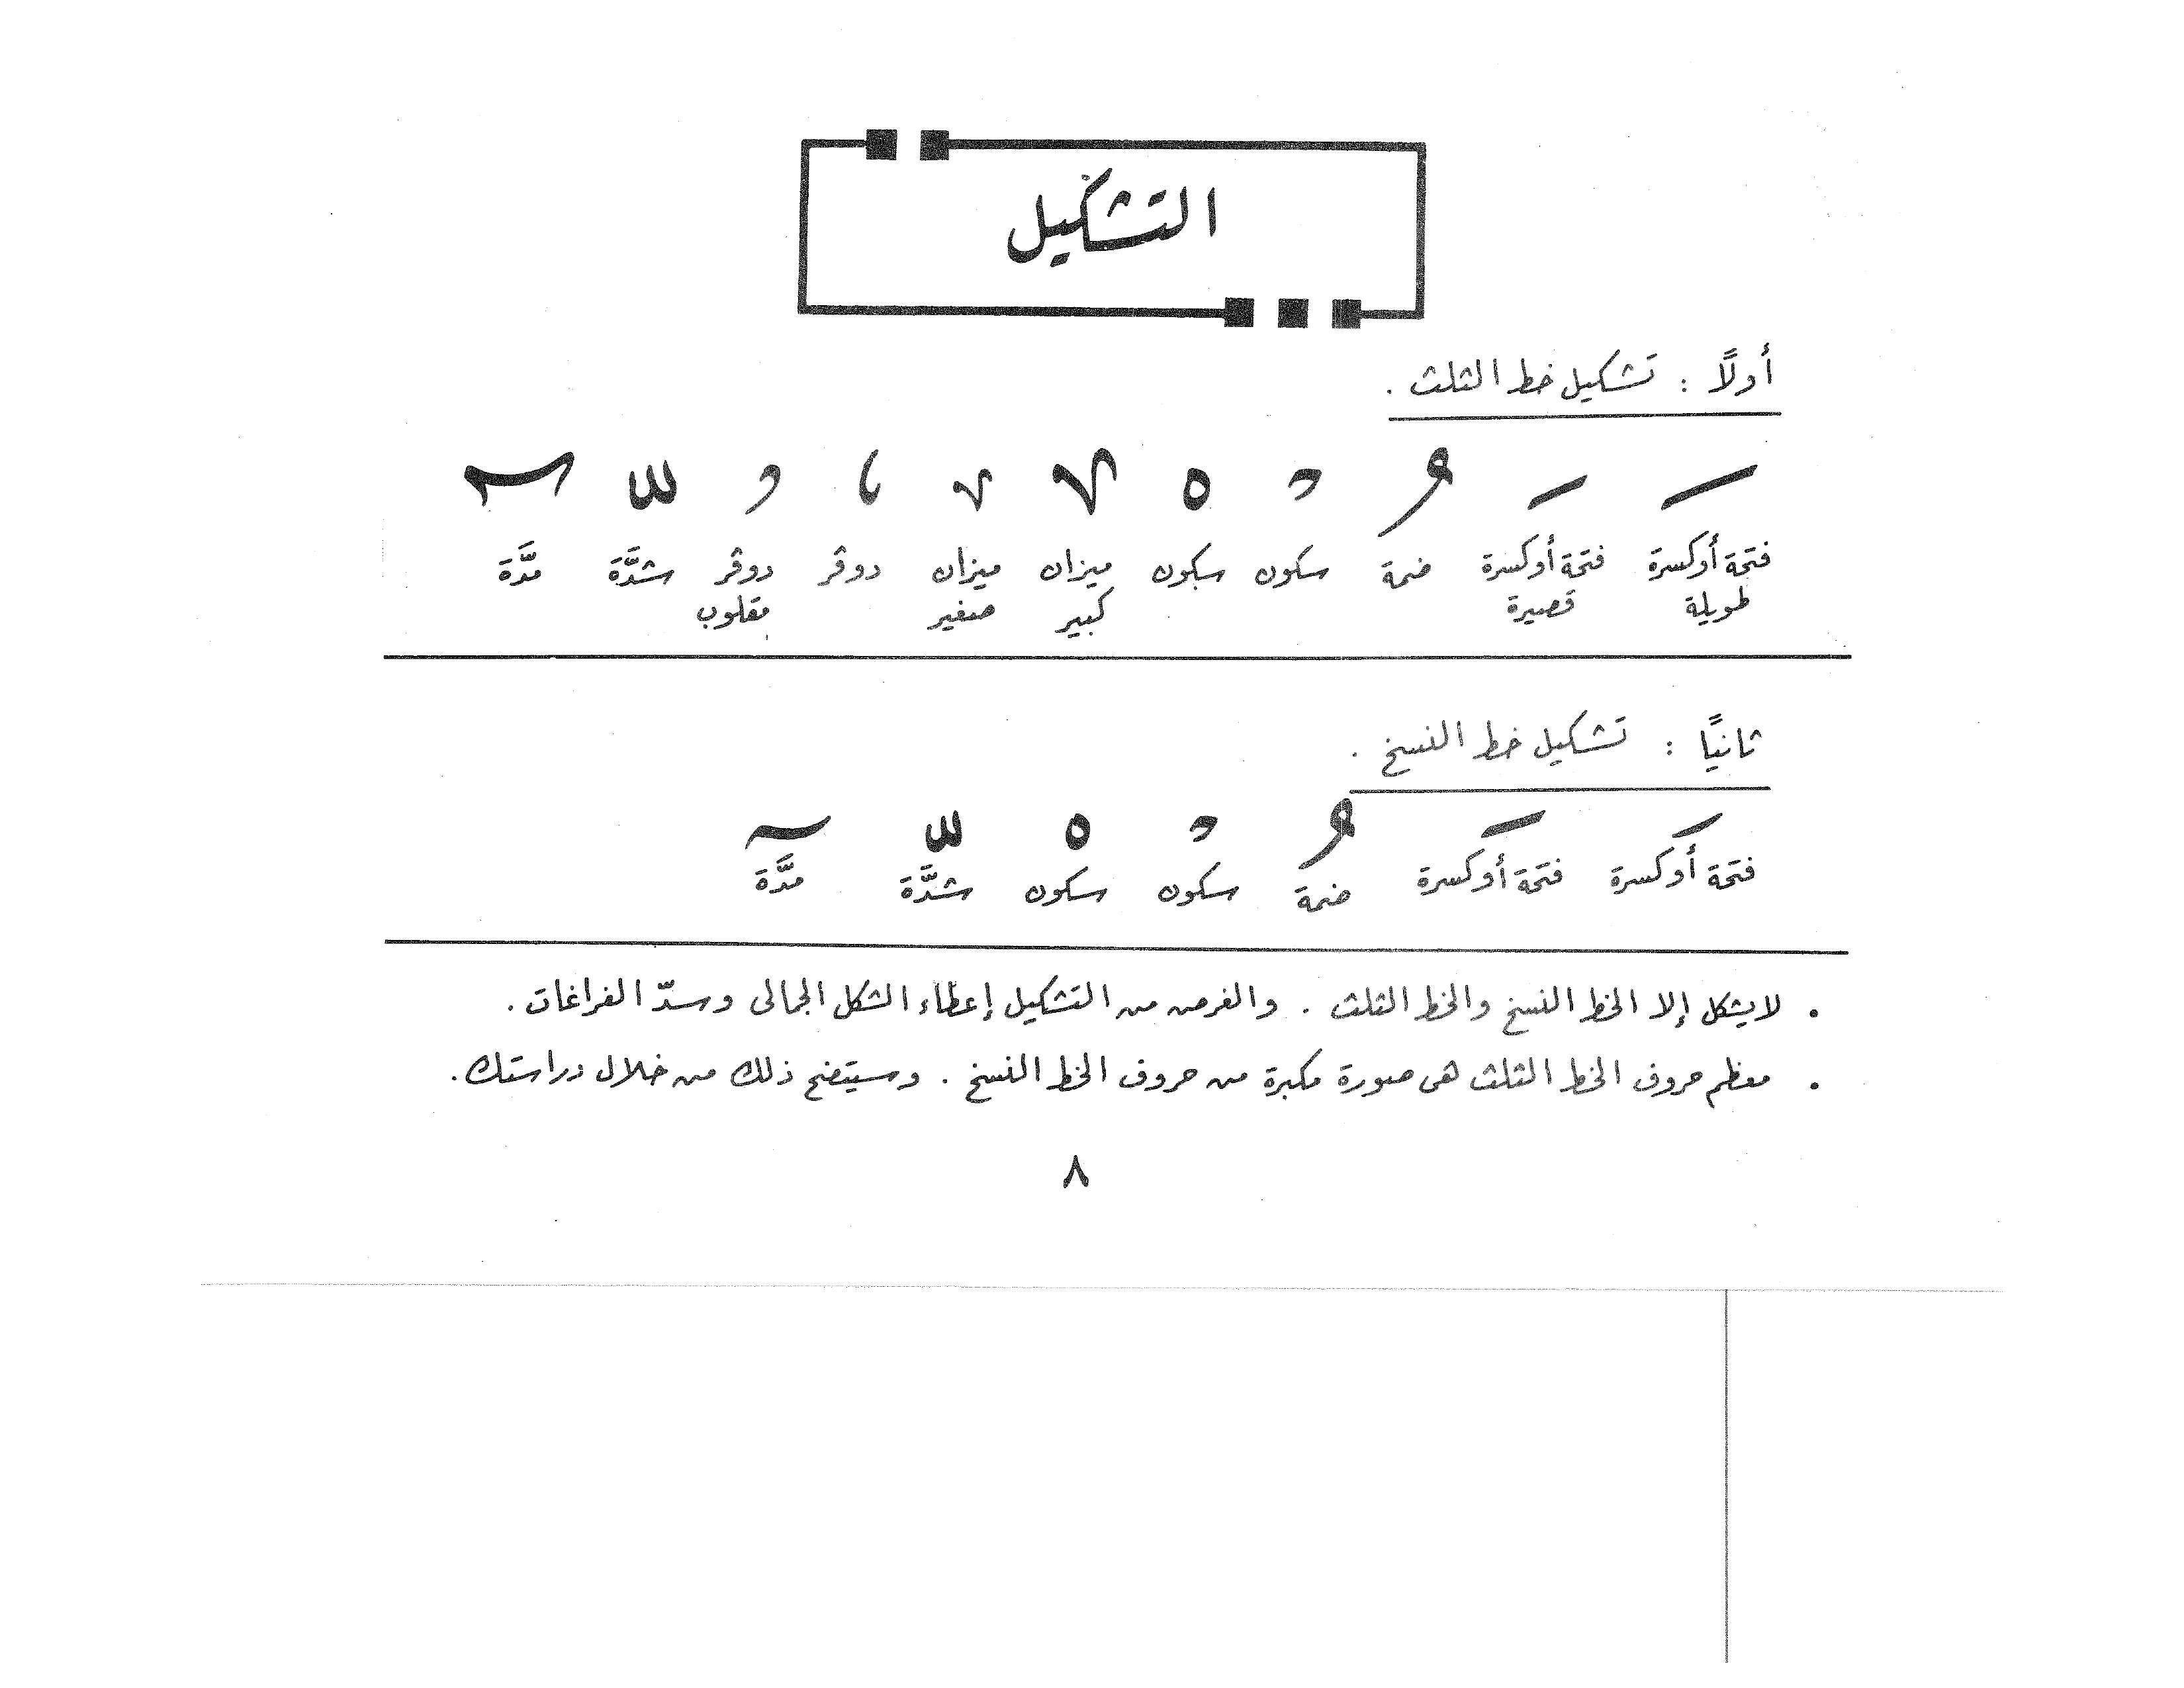 التشكيل
أولاً : تشكيل خط الثلث .
فتحة أوكسرة فتحة أوكسرة ضمة سكون سكون ميزان ميزان دوقر دوقر شدَّة مدَّة
طويلة قصيرة كبير صغير مقلوب
ثانيًا : تشكيل خط النسخ .
فتحة أوكسرة فتحة أوكسرة ضمة سكون سكون شدَّة مدَّة
• لايشكل إلا الخط النسخ والخط الثلث . والغرض من التشكيل إعطاء الشكل الجمالى وسدّ الفراغات .
• معظم حروف الخط الثلث هى صورة مكبرة من حروف الخط النسخ . وسيتضح ذلك من خلال دراستك .
٨